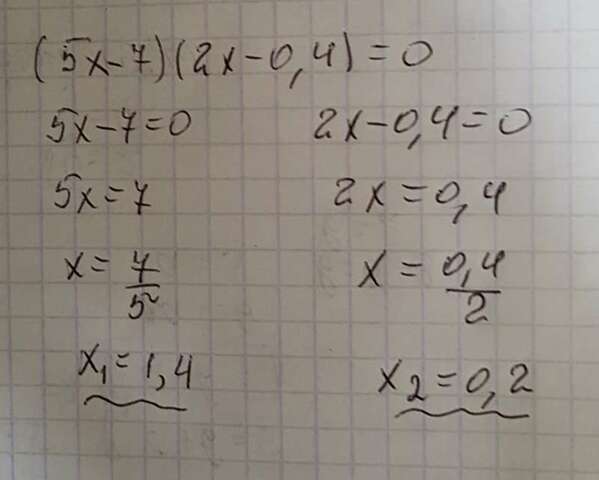 (5x-7)(2x-0,4)=0
5x-7=0 2x-0,4=0
5x=7 2x=0,4
x=7/5 x=0,4/2
x₁=1,4 x₂=0,2